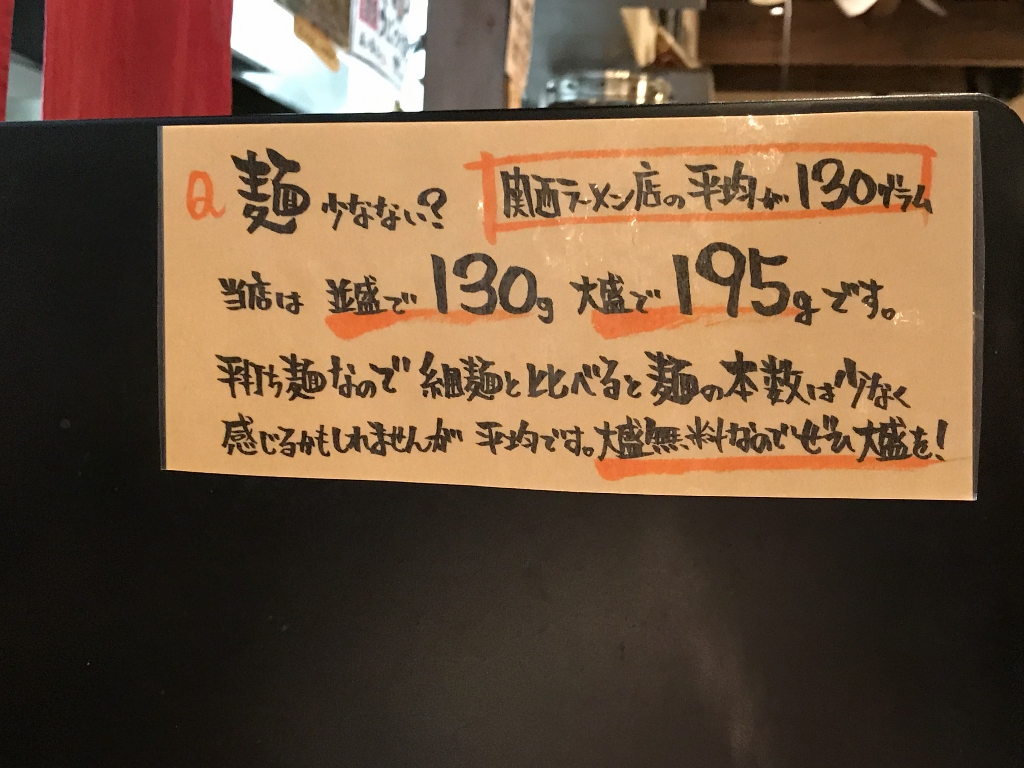 Q 麺少なない? 関西ラーメン店の平均が130グラム
当店は 並盛で130g 大盛で195gです。
平打ち麺なので細麺と比べると麺の本数は少なく
感じるかもしれませんが 平均です。大盛無料なのでぜひ大盛を!